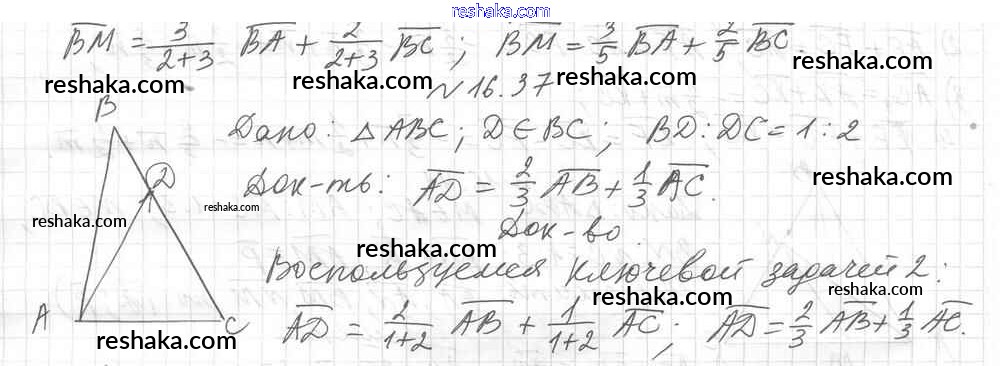 reshaka.com
BM = 3/(2+3) BA + 2/(2+3) BC; BM = 3/5 BA + 2/5 BC.
reshaka.com reshaka.com reshaka.com reshaka.com
№ 16.37
B
Дано: △ ABC; D ∈ BC; BD : DC = 1 : 2
D
Док-ть: AD = 2/3 AB + 1/3 AC.
reshaka.com
reshaka.com reshaka.com
Док-во
reshaka.com
Воспользуемся ключевой задачей 2:
reshaka.com
A C
AD = 2/(1+2) AB + 1/(1+2) AC; AD = 2/3 AB + 1/3 AC.
reshaka.com reshaka.com reshaka.com